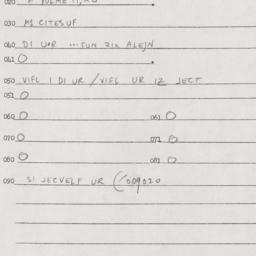 020
030 M1 CITESUF
040 DI UOR ... FUN ZIX ALEJN
041
050 VIFL I DI UR / VIFL UR IZ JECT
051
060 061
070 071
080 081
090 SI JECVELF UR (/009020